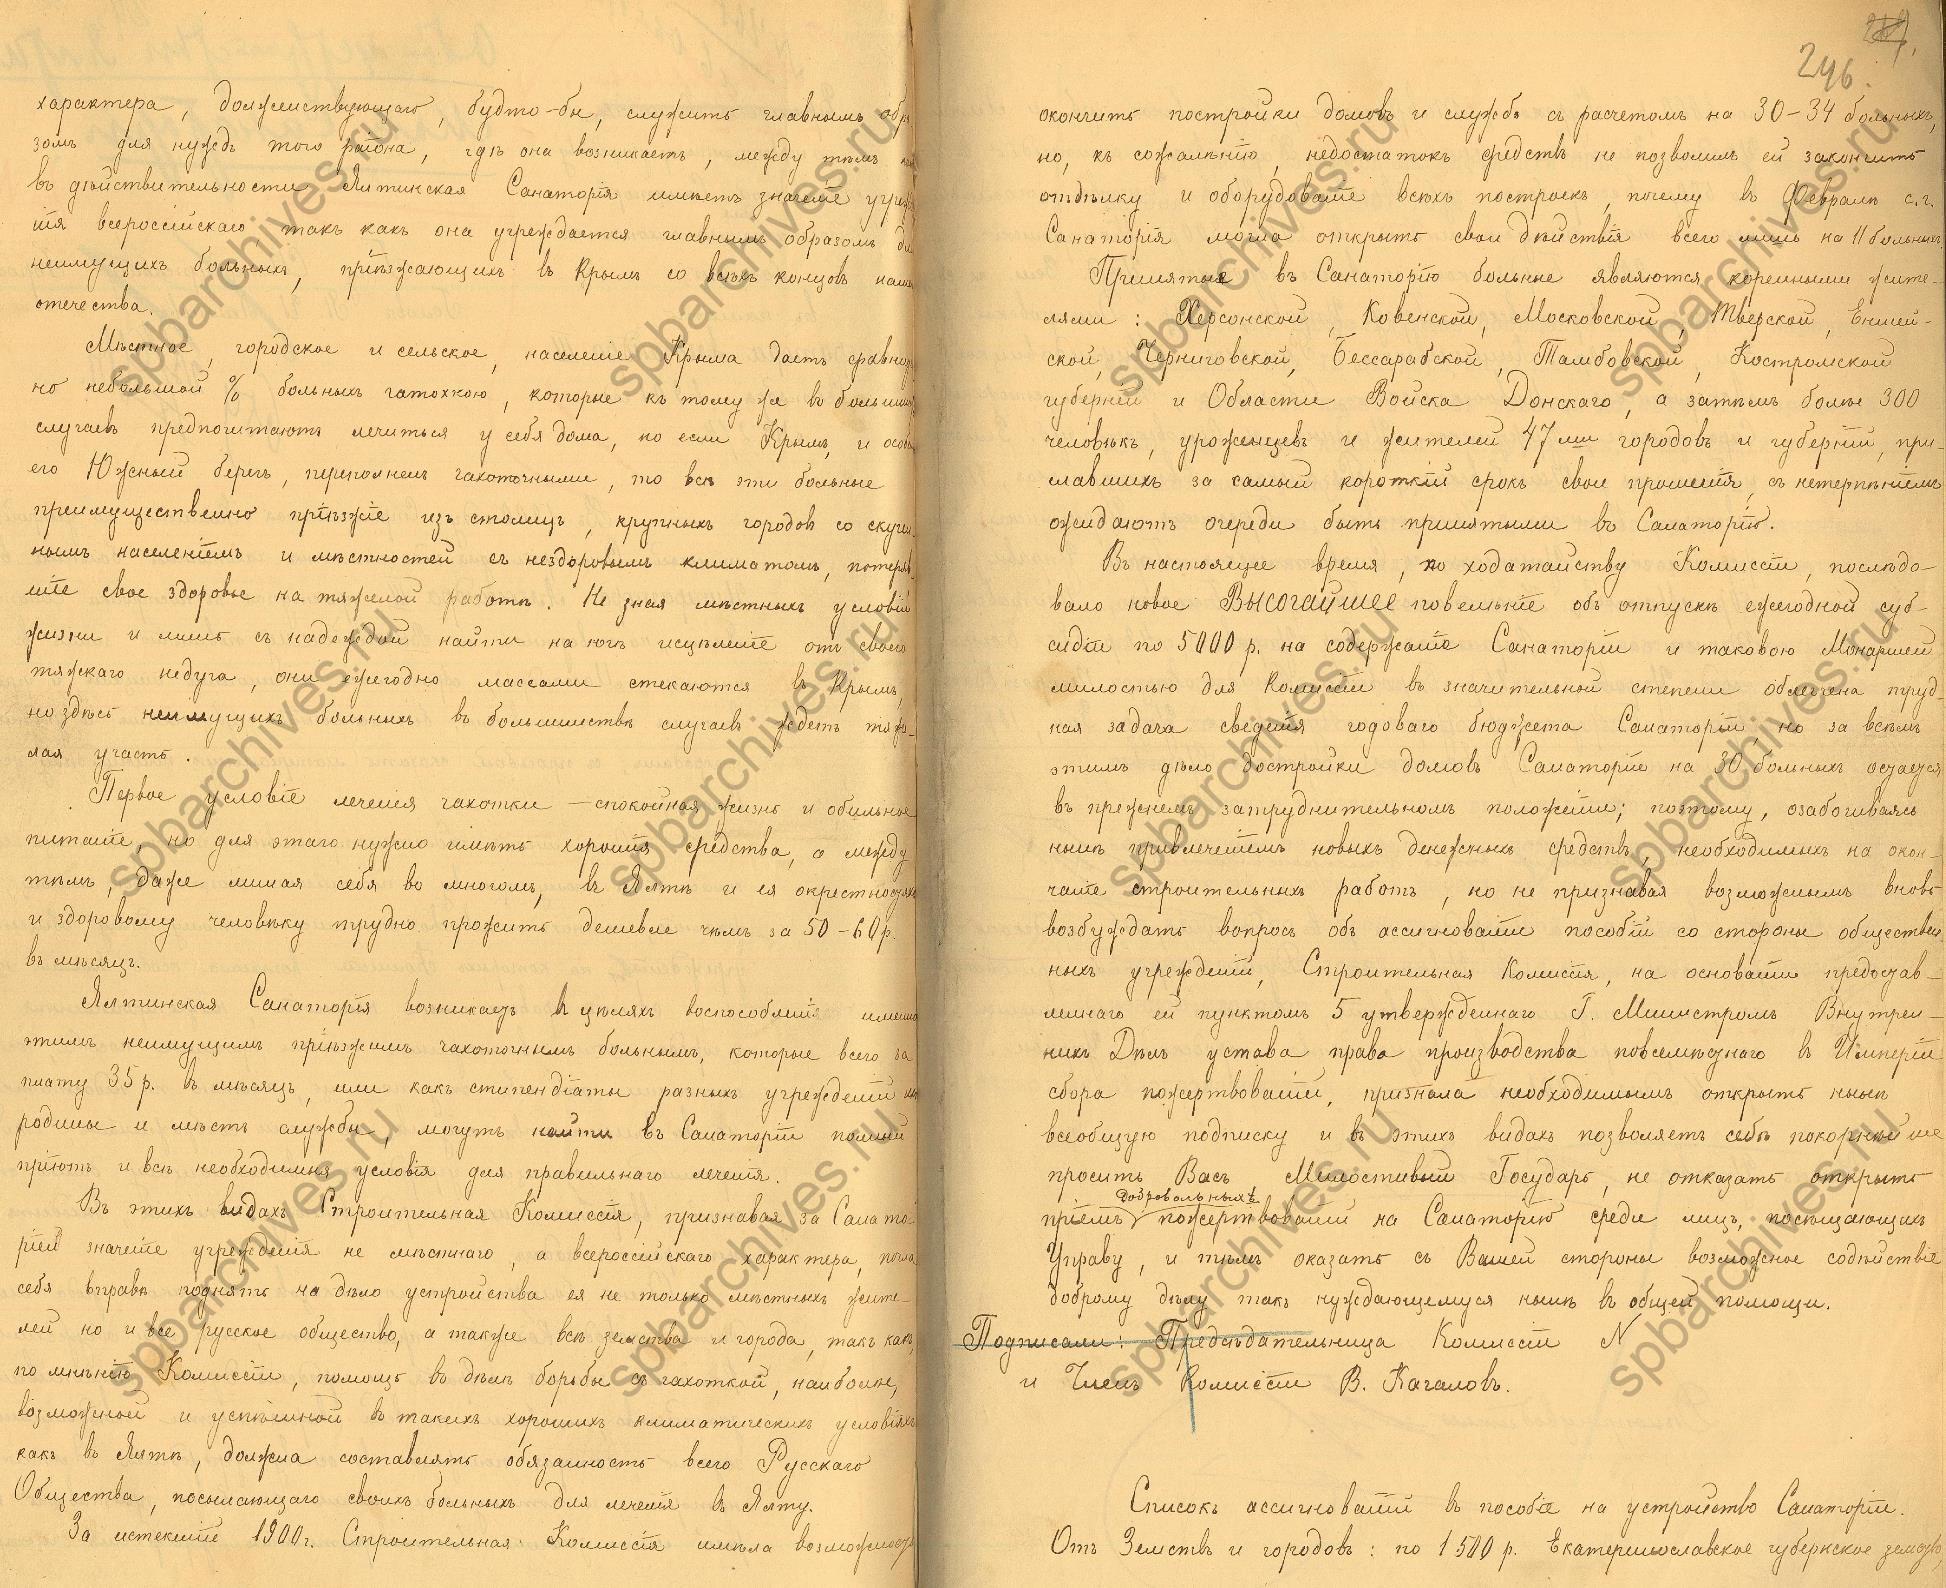 характера, долженствующаго, будто-бы, служить главнымъ обра
зомъ для нуждъ того района, гдѣ она возникаетъ, между тѣмъ
въ дѣйствительности Ялтинская Санаторія имѣетъ значеніе учрежд
нія всероссійскаго такъ какъ она учреждается главнымъ образомъ дл
неимущихъ больныхъ, пріѣзжающихъ въ Крымъ со всѣхъ концовъ наше
отечества.
Мѣстное, городское и сельское, населеніе Крыма даетъ сравнит
но небольшой % больныхъ чахоткою, которые къ тому же въ больши
случаевъ предпочитаютъ лечиться у себя дома, но если Крымъ, и особ
его Южный берегъ, переполненъ чахоточными, то всѣ эти больные
преимущественно пріѣзжіе изъ столицъ, крупныхъ городовъ со скучен
нымъ населеніемъ и мѣстностей съ нездоровымъ климатомъ, потеряв
шіе свое здоровье на тяжелой работѣ. Не зная мѣстныхъ условій
жизни и лишь съ надеждой найти на югѣ исцѣленіе отъ своего
тяжкаго недуга, они ежегодно массами стекаются въ Крымъ,
но здѣсь неимущихъ больныхъ въ большинствѣ случаевъ ждетъ тяже-
лая участь.
Первое условіе леченія чахотки — спокойная жизнь и обильное
питаніе, но для этаго нужно имѣть хорошія средства, а между
тѣмъ, даже лишая себя во многомъ, въ Ялтѣ и ея окрестностяхъ
и здоровому человѣку трудно прожить дешевле чѣмъ за 50-60 р.
въ мѣсяцъ.
Ялтинская Санаторія возникаетъ въ цѣляхъ воспособленія именно
этимъ неимущимъ пріѣзжимъ чахоточнымъ больнымъ, которые всего за
плату 35 р. въ мѣсяцъ, или какъ стипендіаты разныхъ учрежденій
родины и мѣстъ службы, могутъ найти въ Санаторіи полный
пріютъ и всѣ необходимыя условія для правильнаго леченія.
Въ этихъ видахъ Строительная Комиссія, признавая за Санато-
ріей значеніе учрежденія не мѣстнаго, а всероссійскаго характера,
себя вправѣ поднять на дѣло устройства ея не только мѣстныхъ жите-
лей но и все русское общество, а также всѣ земства и города, такъ какъ,
по мнѣнію Комиссіи, помощь въ дѣлѣ борьбы съ чахоткой, наиболѣе,
возможной и успѣшной въ такихъ хорошихъ климатическихъ условіяхъ
какъ въ Ялтѣ, должна составлять обязанность всего Русскаго
Общества, посылающаго своихъ больныхъ для леченія въ Ялту.
За истекшіе 1900 г. Строительная Комиссія имѣла возможность
246
окончить постройки домовъ и службъ съ расчетомъ на 30-34 больныхъ,
но, къ сожалѣнію, недостатокъ средствъ не позволилъ ей закончить
отдѣлку и оборудованіе всѣхъ построекъ, почему въ Февралѣ с.г.
Санаторія могла открыть свои дѣйствія всего лишь на 11 больныхъ.
Принятые въ Санаторію больные являются коренными жите-
лями: Херсонской, Ковенской, Московской, Тверской, Енисей-
ской, Черниговской, Бессарабской, Тамбовской, Костромской
губерній и Области Войска Донскаго, а затѣмъ болѣе 300
человѣкъ, уроженцевъ и жителей 47ми городовъ и губерній, при-
славшихъ за самый короткій срокъ свои прошенія, съ нетерпѣніемъ
ожидаютъ очереди быть принятыми въ Санаторію.
Въ настоящее время, по ходатайству Комиссіи, послѣдо-
вало новое Высочайшее повельніе объ отпускѣ ежегодной суб-
сидіи по 5000 р. на содержаніе Санаторіи и таковою Монаршей
милостью для Комиссіи въ значительной степени облегчена труд-
ная задача сведенія годоваго бюджета Санаторіи, но за всѣмъ
этимъ дѣло достройки домовъ Санаторіи на 30 больныхъ остается
въ прежнемъ затруднительномъ положеніи; поэтому, озабочиваясь
нынѣ привлеченіемъ новыхъ денежныхъ средствъ, необходимыхъ на окон-
чаніе строительныхъ работъ, но не признавая возможнымъ вновь
возбуждать вопросъ объ ассигнованіи пособій со стороны обществен-
ныхъ учрежденій, Строительная Комиссія, на основаніи предостав-
леннаго ей пунктомъ 5 утвержденнаго Г. Министромъ Внутрен-
нихъ Дѣлъ устава права производства повсемѣстнаго въ Имперіи
сбора пожертвованій, признала необходимымъ открыть нынѣ
всеобщую подписку и въ этихъ видахъ позволяетъ себѣ покорнѣйше
просить Васъ Милостивый Государь, не отказать открыть
добровольныхъ
пріемъ пожертвованій на Санаторію среди лицъ, посѣщающихъ
Управу, и тѣмъ оказать съ Вашей стороны возможное содѣйствіе
доброму дѣлу такъ нуждающемуся нынѣ въ общей помощи.
Подписали: Предсѣдательница Комиссіи N
и Членъ Комиссіи В. Качаловъ.
Списокъ ассигнованій въ пособіе на устройство Санаторіи.
Отъ Земствъ и городовъ: по 1500 р. Екатеринославское губернское земство,